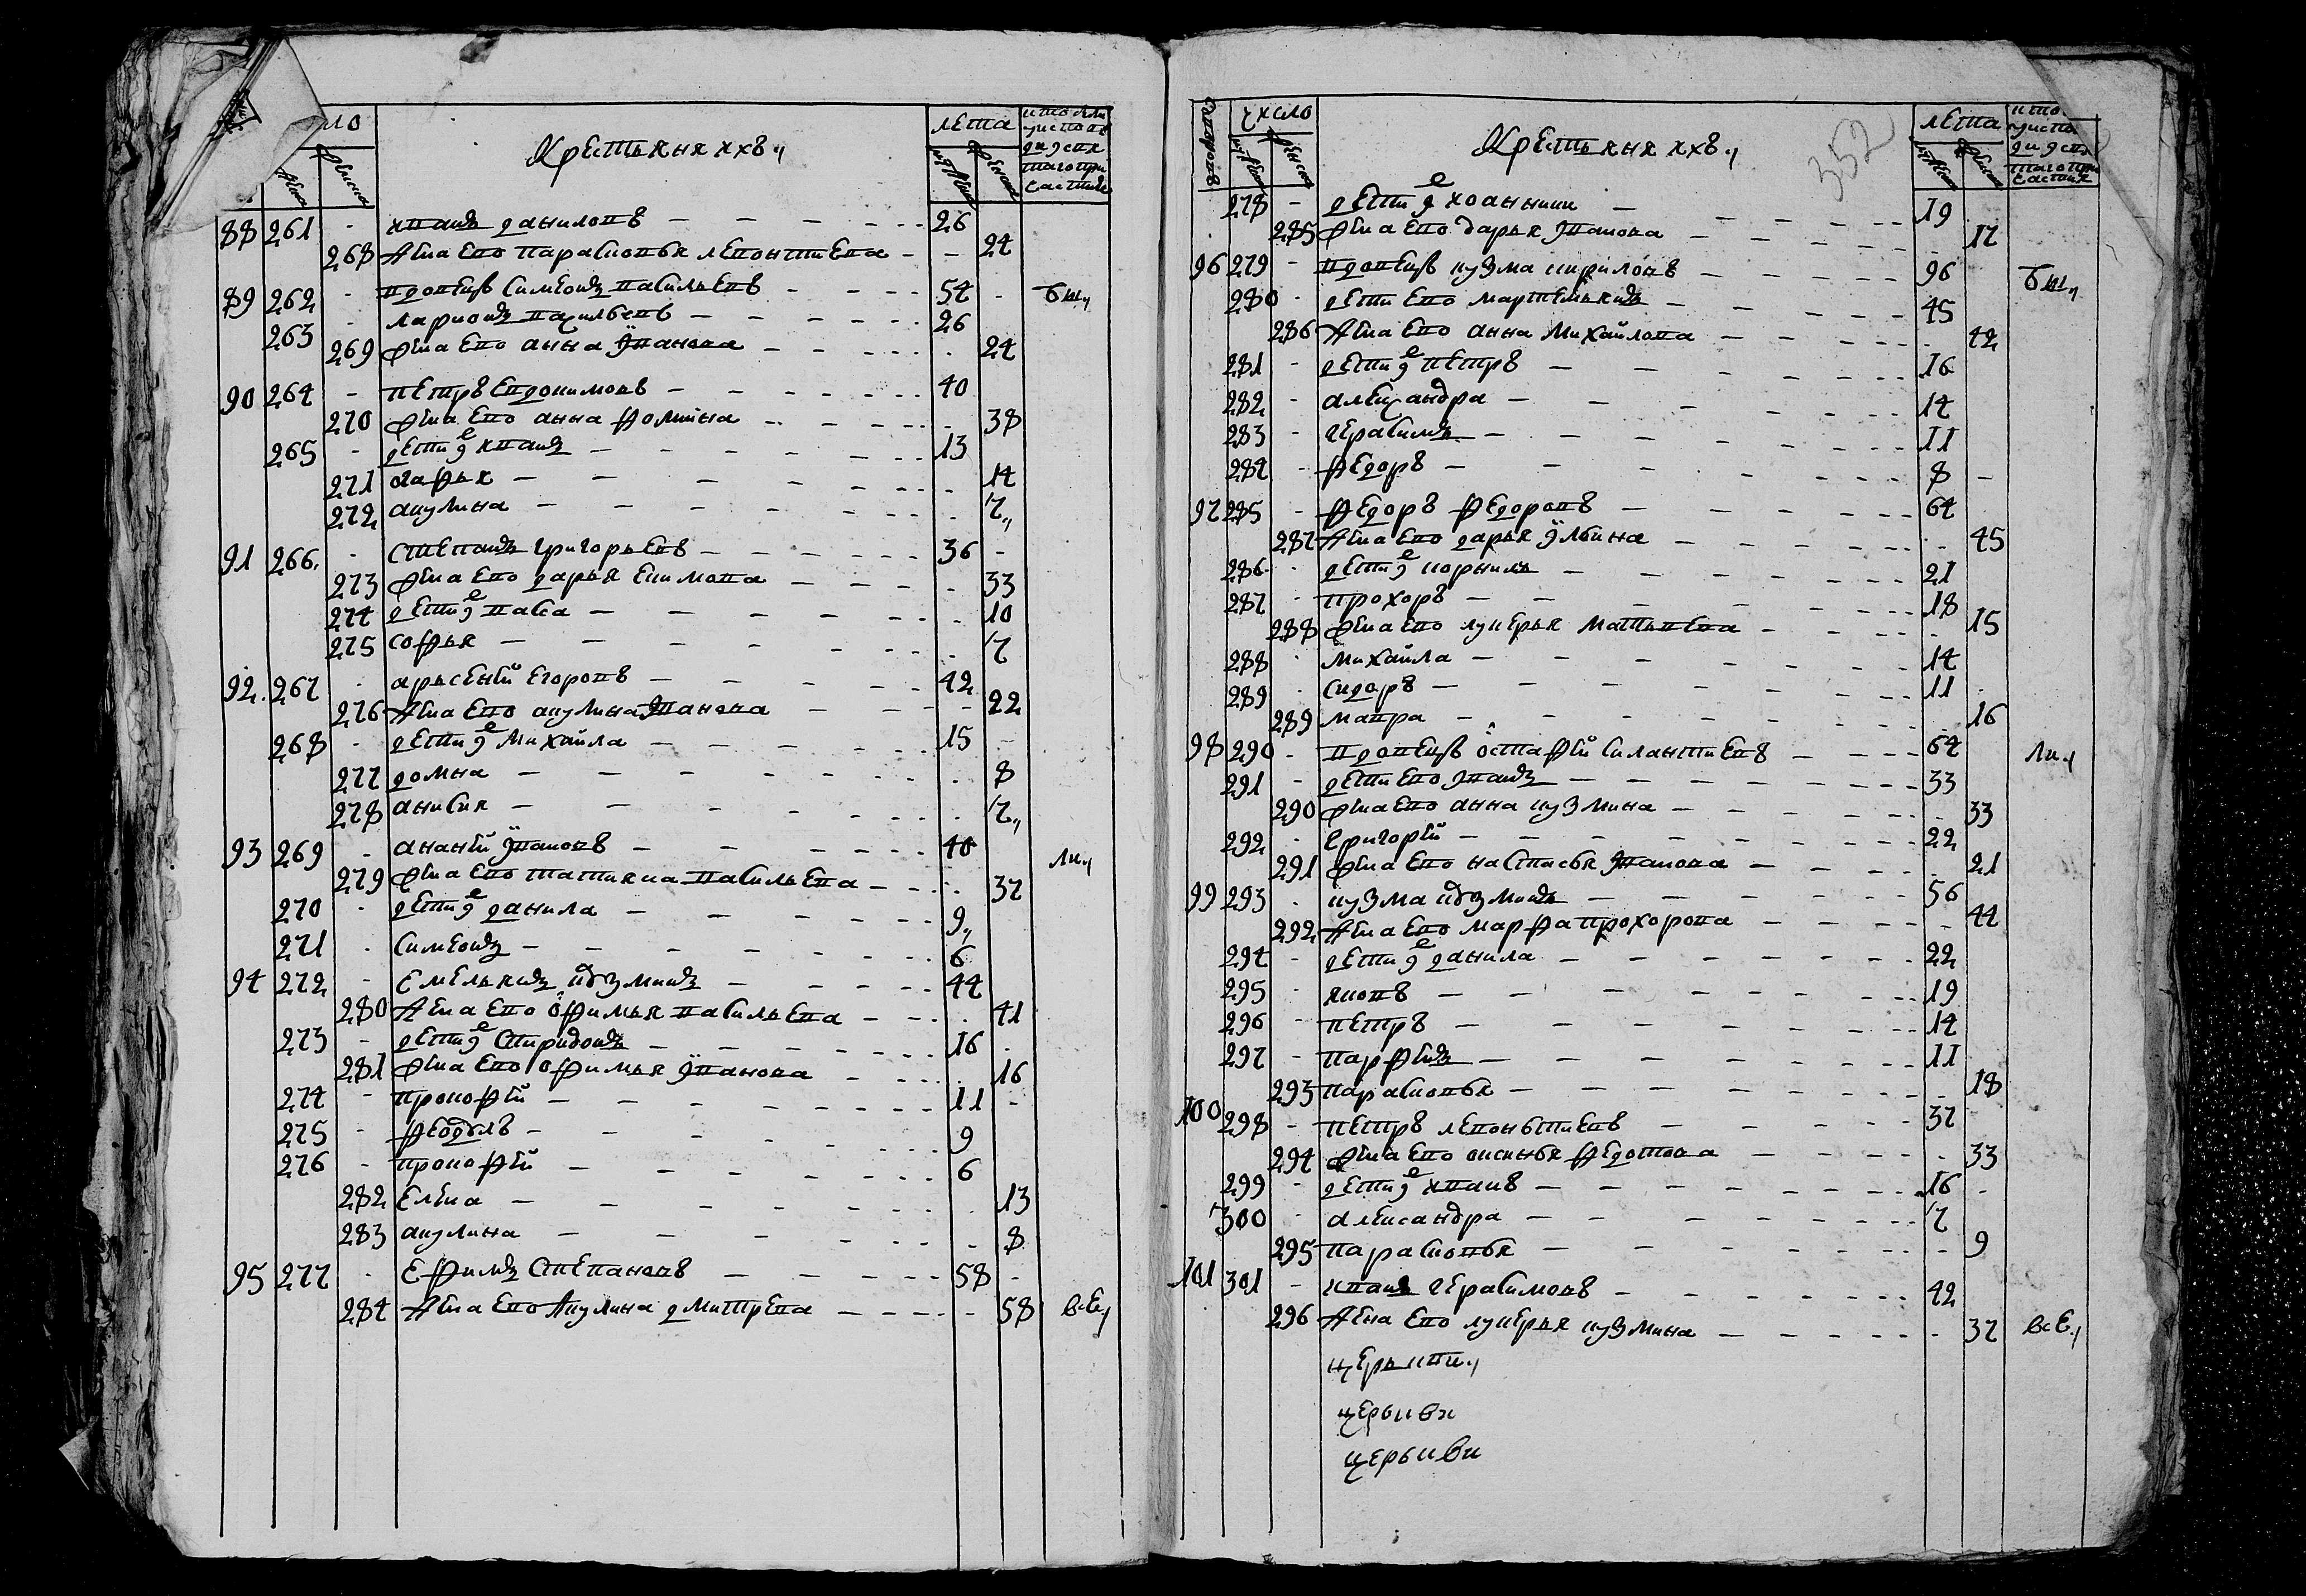 ло Крестьяня ихъ лета
88 261 - иванъ даниловъ 26
268 жена ево парасковья левонтиева 24
89 262 - вдовецъ симеонъ васильевъ 54 - бы
263 - ларионъ васильевъ 26
269 жена ево анна иванова 24
90 264 - петръ евдокимовъ 40
270 жена ево анна фомина 38
265 - дети е иванъ 13
271 агафья 14
272 акулина 7
91 266 - степанъ григорьевъ 36 -
273 жена ево дарья екимова 33
274 дети е васса 10
275 софья 7
92 267 - арьсений егоровъ 42
276 жена ево акулина иванова 22
268 - дети е михайла 15 -
277 домна 8
278 анисия 7
93 269 - ананий ивановъ 40 ли
279 жена ево татияна васильева 37
270 - дети е данила 9
271 - симеонъ 6
94 272 - емельянъ кузминъ 44
280 жена ево офимья васильева 41
273 - дети е спиридонъ 16 -
281 жена ево офимья иванова 16
274 - прокофий 11 -
275 - феодулъ 9
276 - прокофий 6
282 елена 13
283 акулина 8
95 277 - ефимъ степановъ 58 -
284 жена ево акулина дмитрева 58 все
число Крестьяня ихъ 352 лета
278 - дети е иоанники 19
285 жена ево дарья иванова 17
96 279 - вдовецъ кузма кириловъ 96 бы
280 - дети ево мартемьянъ 45
286 жена ево анна михайлова 42
281 - дети е петръ 16
282 - алеѯандра 14
283 - герасимъ 11
284 - федоръ 8 -
97 285 - федоръ федоровъ 64
287 жена ево дарья ульвина 45
286 - дети е корнилъ 21
287 - прохоръ 18
288 жена ево лукерья матвеева 15
288 - михайла 14
289 - сидоръ 11
289 мавра 16
98 290 - вдовецъ остафей силантиевъ 64 ли
291 - дети ево иванъ 33
290 жена ево анна кузмина 33
292 - григорей 22
291 жена ево настасья иванова 21
99 293 - кузма кузминъ 56
292 жена ево марфа прохорова 44
294 - дети е данила 22
295 - яковъ 19
296 - петръ 14
297 - парфенъ 11
293 парасковья 18
100 298 - петръ левонътиевъ 37
294 жена ево оксинья федотова 33
299 - дети е иванъ 16 -
300 - александра 7
295 парасковья 9
101 301 - иванъ герасимовъ 42
296 жена ево лукерья кузмина 37 все
церькви
церькви
церькви